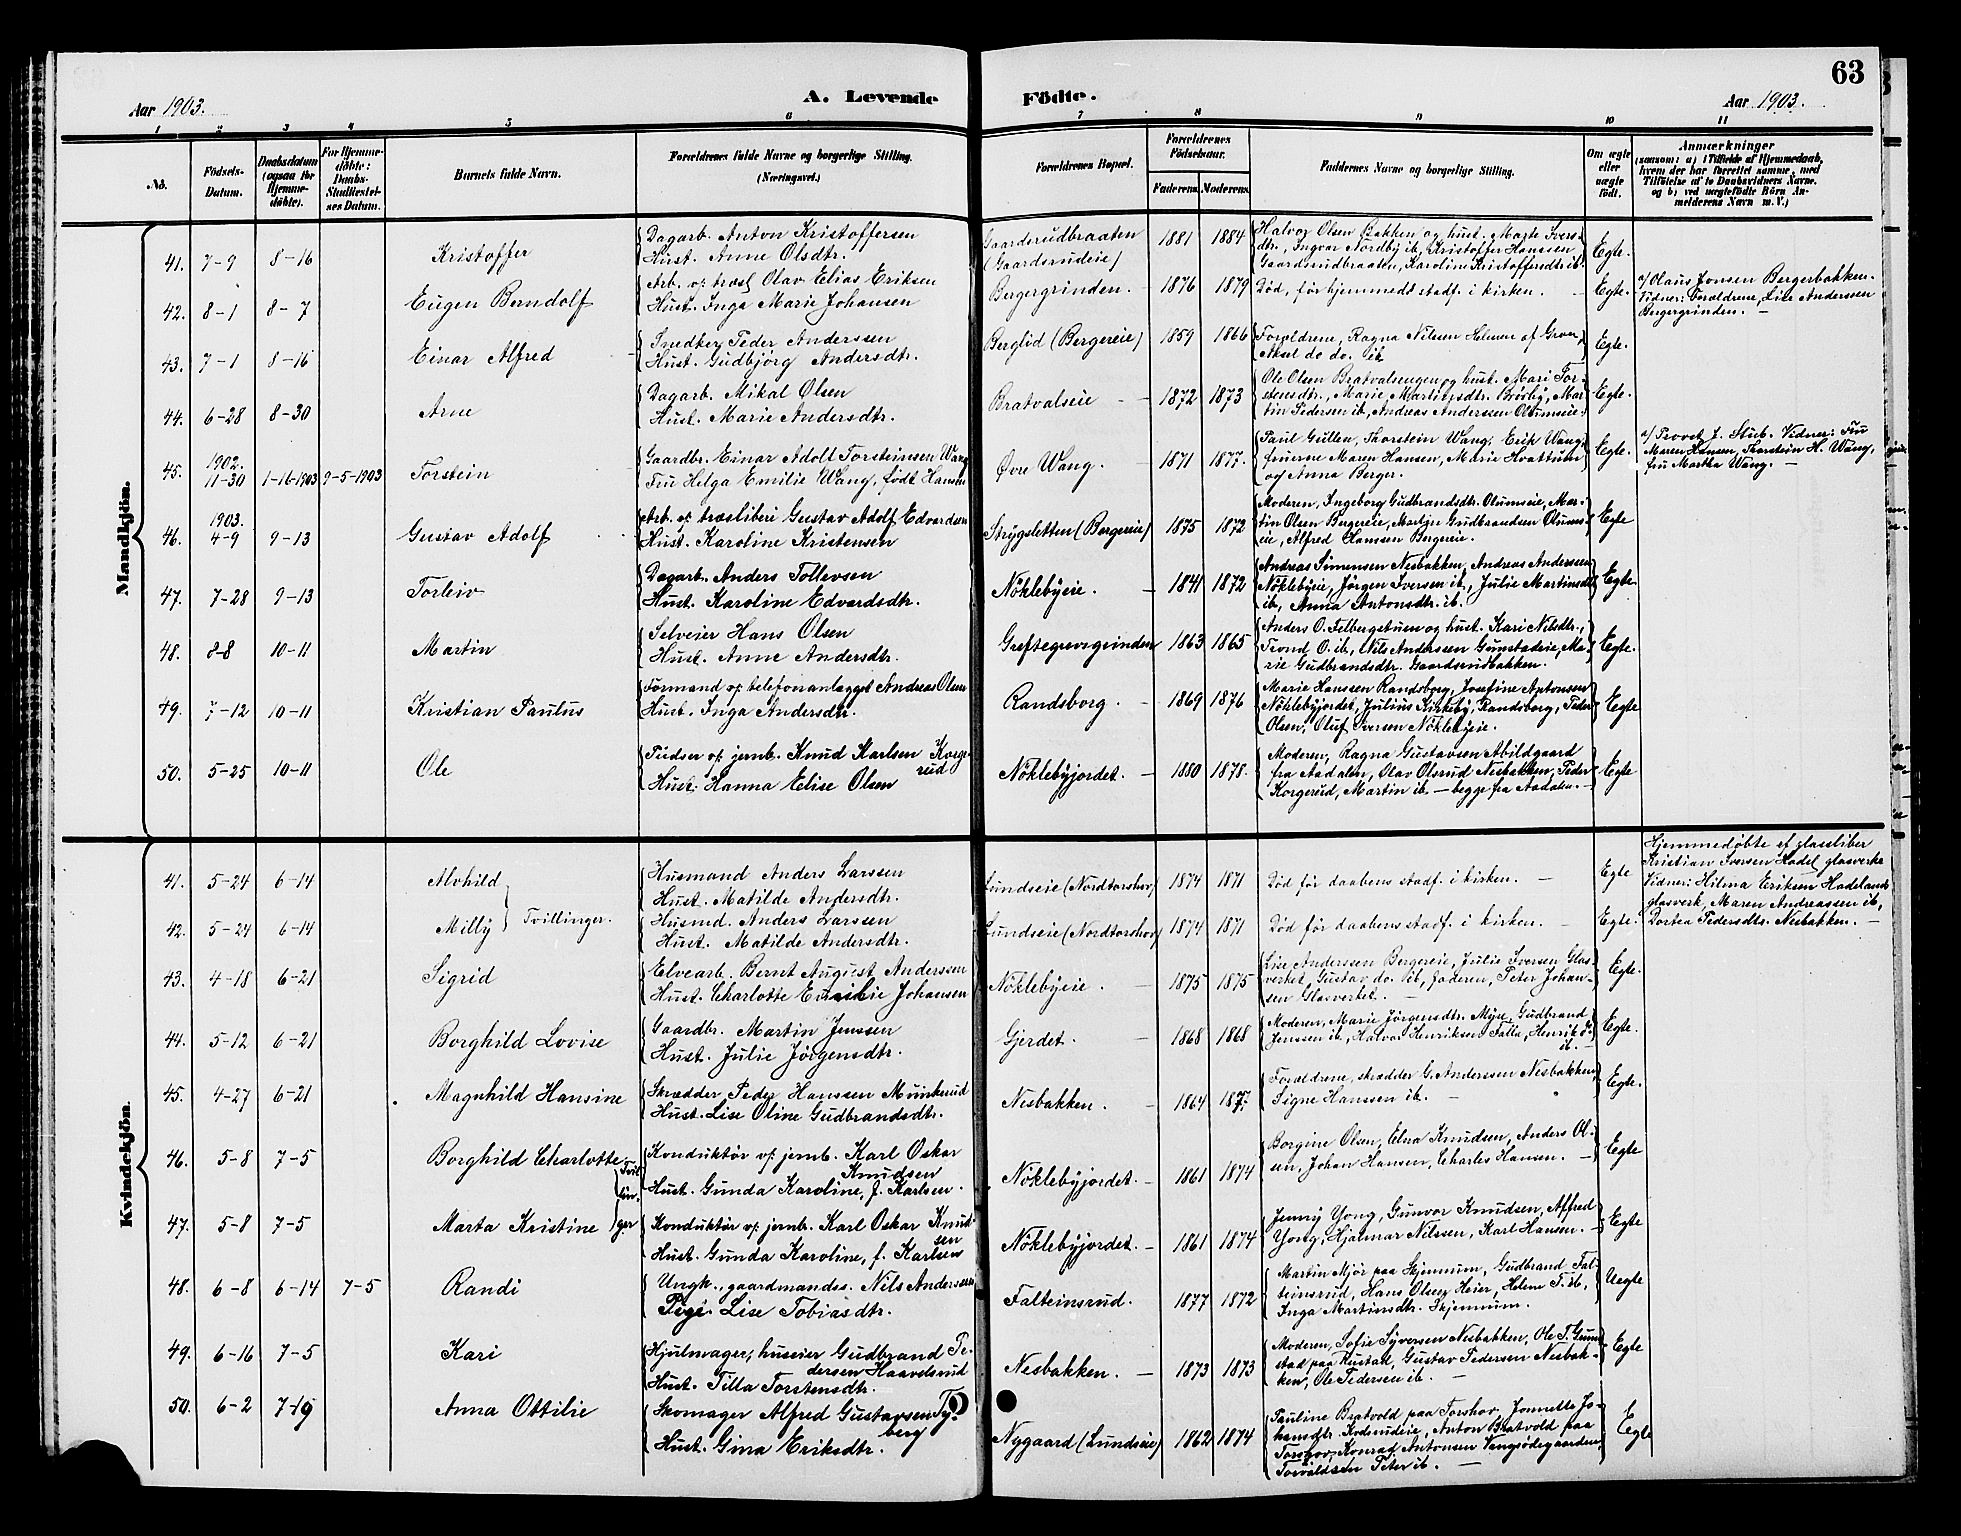 63
Aar 1903.
A. Levende Födte.
Aar 1903.
1 2 3 4 5 6 7 8 9 10 11
No.
Födsels-Datum.
Daabsdatum (ogsaa for Hjemmedöbte).
For Hjemmedöbte: Daabs-Stadfæstelses Datum.
Barnets fulde Navn.
Forældrenes fulde Navne og borgerlige Stilling.
(Næringsvei.)
Forældrenes Bopæl.
Forældrenes Födselsaar.
Faderens. Moderens.
Faddernes Navne og borgerlige Stilling.
Om ægte eller uægte födt.
Anmærkninger
(saasom: a) i Tilfælde af Hjemmedaab, hvem der har forrettet samme, med Tilföielse af to Daabsvidners Navne, og b) ved uægtefödte Börn Anmelderens Navn m. V.)
Mandkjön.
41. 7-9 8-16 Kristoffer
Dagarb. Anton Kristoffersen
Hust. Anne Olsdtr.
Gaardsrudbraaten
(Gaardsrudeie)
1881 1884
Halvor Olsen Bakken og hust. Marte Ivers-
dtr., Ingvar Nordby ib., Kristoffer Hanssen
Gaardsrudbraaten, Karoline Kristoffersdtr. ib.
Egte.
42. 8-1 8-7 Eugen Berndolf
Arb. v. træsl. Olav Elias Eriksen
Hust. Inga Marie Johansen
Bergergrinden. 1876 1879
Död, før hjemmedb. stadf. i kirken. Egte.
a/ Olaus Jonsen Bergerbakken.
Vidner: Forældrene, Lise Anderssen
Bergergrinden.
43. 7-1 8-16 Einar Alfred
Snedker Peder Anderssen
Hust. Gudbjörg Andersdtr.
Berglid (Bergereie) 1859 1866
Forældrene, Ragna Nilsen Helmen af Gran,
Aksel do do. ib.
Egte.
44. 6-28 8-30 Arne
Dagarb. Mikal Olsen
Hust. Marie Andersdtr.
Bratvalseie 1872 1873
Ole Olsen Bratvalsengen og hust. Mari Tor-
stensdtr., Marie Martinsdtr. Bröby, Mar-
tin Pedersen ib, Andreas Anderssen Olumseie.
Egte.
45. 1902. 11-30 1-16-1903 9-5-1903 Torstein
Gaardbr. Einar Adolf Torsteinsen Wang
Fru Helga Emilie Wang, født Hansen
Øvre Wang. 1871 1877.
Paul Gullen, Thorstein Wang, Erik Wang,
fruerne Maren Hansen, Marie Hvattum
og Anna Berger.
Egte.
a/ Provst J. Stub. Vidner: Fru
Maren Hansen, Thorstein H. Wang,
fru Martha Wang.
46. 1903. 4-9 9-13 Gustav Adolf
Arb. v. træsliberi Gustav Adolf Edvardsen
Hust. Karoline Kristensen
Strygsletten (Bergereie) 1875 1872
Moderen, Ingeborg Gudbrandsdtr. Olumseie, Mar-
tin Olsen Bergereie, Martin Gudbrandsen Olums-
eie, Alfred Hansen Bergereie.
Egte
47. 7-28 9-13 Torleiv
Dagarb. Anders Tollevsen
Hust. Karoline Edvardsdtr.
Nöklebyeie. 1841 1872
Andreas Simensen Nesbakken, Andreas Anderssen
Nöklebyeie, Jörgen Iversen ib, Julie Martinsdt.
ib, Anna Antonsdtr. ib.
Egte
48. 8-8 10-11 Martin
Selveier Hans Olsen
Hust. Anne Andersdtr.
Greftegrevgrinden 1863 1865
Anders O. Felbergstuen og hust. Kari Nilsdtr.,
Trond O. ib., Nils Anderssen Gunstadeie, Ma-
rie Gudbrandsdtr. Gaardsrudbakken.
Egte.
49. 7-12 10-11 Kristian Paulus
Formand v. telefonanlægget Andreas Olsen
Hust. Inga Andersdtr.
Randsborg. 1869 1876
Marie Hanssen Randsborg, Josefine Antonsen
Nöklebyjordet, Julius Kirkeby, Randsborg, Peder
Olsen, Oluf Iversen Nöklebyeie.
Egte
50. 5-25 10-11 Ole
Pudser v. jernb. Knud Karlsen Korge-
rud
Hust. Hanna Elise Olsen
Nöklebyjordet. 1880 1878.
Moderen, Ragna Gustavsen Abildgaard
fra Aadalen, Olav Olsrud Nesbakken, Peder
Korgerud, Martin ib. - begge fra Aadalen.
Egte
Kvindekjön.
41. 5-24 6-14 Alvhild
Husmand Anders Larssen
Hust. Matilde Andersdtr.
Lundseie (Nordtorshov) 1874 1871
Död før daabens stadf. i kirken. Egte
Tvillinger.
Hjemmedøbte af glassliber
Kristian Iversen Hadel. glasverke
Vidner: Hilma Eriksen Hadelands
glasverk, Maren Andreassen ib,
Dortea Pedersdtr. Nesbakken.
42. 5-24 6-14 Milly
Husmd. Anders Larssen
Hust. Matilde Andersdtr.
Lundseie (Nordtorshov) 1874 1871
Död før daabens stadf. i kirken. Egte.
43. 4-18 6-21 Sigrid
Elvearb. Bernt August Anderssen
Hust. Charlotte Emilie Johansen
Nöklebyeie. 1875 1875
Lise Anderssen Bergereie, Julie Iversen Glas-
verket, Gustav do. ib, faderen, Peter Johan-
sen Glasverket.
Egte.
44. 5-12 6-21 Borghild Lovise
Gaardbr. Martin Jenssen
Hust. Julie Jörgensdtr.
Gjerdet. 1868 1868
Moderen, Marie Jörgensdtr. Myse, Gudbrand
Jenssen ib, Halvor Henriksen Falla, Henrik J.
ib.
Egte.
45. 4-27 6-21 Magnhild Hansine
Skrædder Peder Hanssen Munkerud
Hust. Lise Oline Gudbrandsdtr.
Nesbakken. 1864 1877.
Forældrene, skrædder G. Anderssen Nesbakken,
Signe Hanssen ib.
Egte.
46. 5-8 7-5 Borghild Charlotte
Konduktør v. jernb. Karl Oskar
Knudsen
Hust. Gunda Karoline, f. Karlsen.
Nöklebyjordet. 1861 1874
Borgine Olsen, Elna Knudsen, Anders Ol-
sen, Johan Hansen, Charles Hansen.
Egte
Tvil-
lin-
ger.
47. 5-8 7-5 Marta Kristine
Konduktør v. jernb. Karl Oskar Knud-
sen
Hust. Gunda Karoline, f. Karlsen
Nöklebyjordet. 1861 1874
Jenny Yong, Gunvor Knudsen, Alfred
Yong, Hjalmar Nilssen, Karl Hansen.
Egte
48. 6-8 6-14 7-5 Randi
Ungk., gaardmands. Nils Anderssen
Pige Lise Tobiasdtr.
Falteinsrud. 1877 1872
Martin Mjör paa Skjennum, Gudbrand Fal-
teinsrud, Hans Olsen Heier, Helene T. ib,
Inga Martinsdtr. Skjennum.
Uegte
49. 6-16 7-5 Kari
Hjulmager, huseier Gudbrand Pe-
dersen Haavelsrud
Hust. Tilla Torstensdtr.
Nesbakken. 1873 1873
Moderen, Sofie Syversen Nesbakken, Ole T. Gunn-
stad paa Rustad, Gustav Pedersen Nesbak-
ken, Ole Pedersen ib.
Egte
50. 6-2 7-19 Anna Ottilie
Skomager Alfred Gustavsen Ty-
berg
Hust. Gina Eriksdtr.
Nygaard (Lundseie) 1862 1874
Pauline Bratvold paa Torshov, Jonnette Jo-
hansdtr. Kodsrudeie, Anton Bratvold paa
Torshov, Konrad Antonsen Vangsödegaarden,
Torvaldsen Peter ib.
Egte